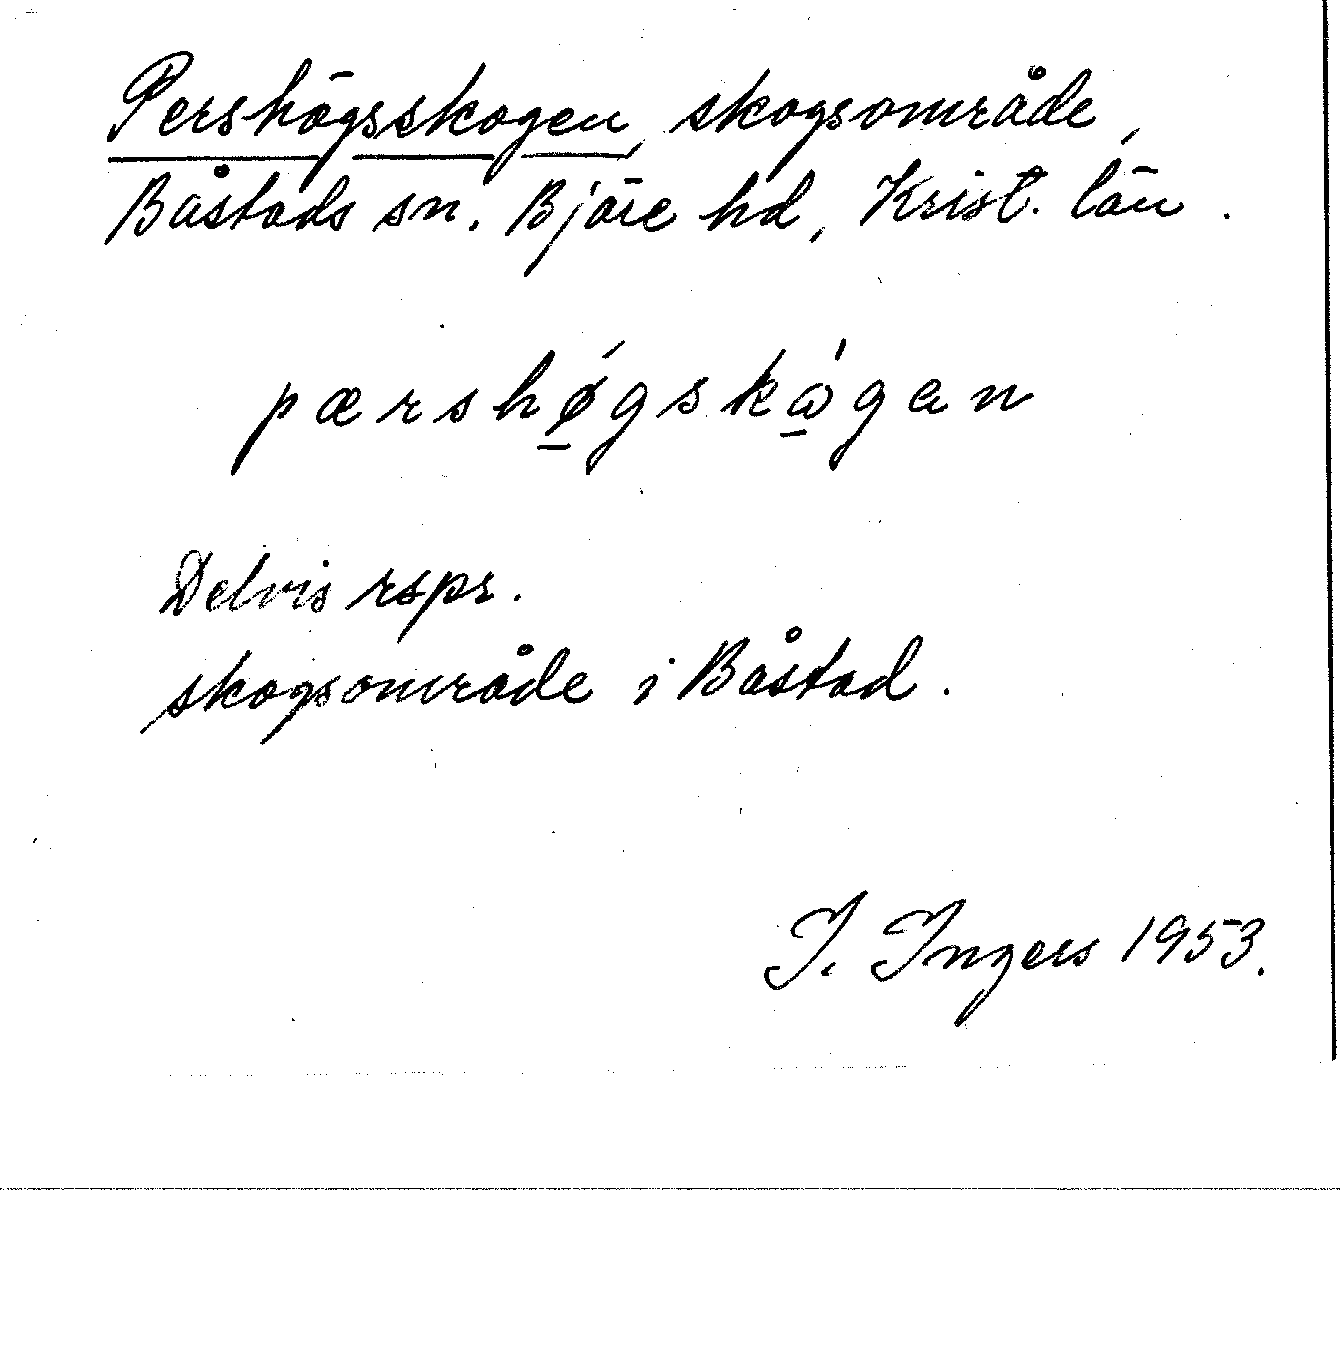 Pershögsskogen, skogsområde,
Båstads sn. Bjäre hd, Krist. län.
pærshǿ̱gskὼ̱gan
Delvis rspr.
skogsområde i Båstad.
I. Ingers 1953.